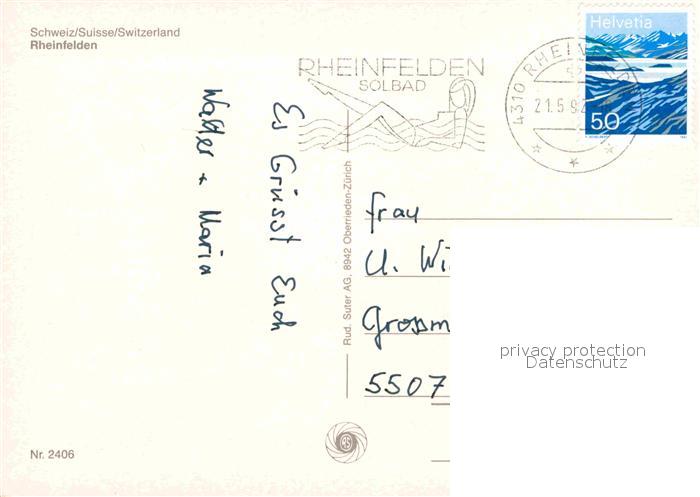 Schweiz/Suisse/Switzerland
Rheinfelden
RHEINFELDEN
SOLBAD
4310 RHEINF
21.5.92
Helvetia
50
Es Grüsst Euch
Walter + Maria
Rud. Suter AG, 8942 Oberrieden-Zürich
Frau
U. Wi
Grossm
5507
privacy protection
Datenschutz
Nr. 2406